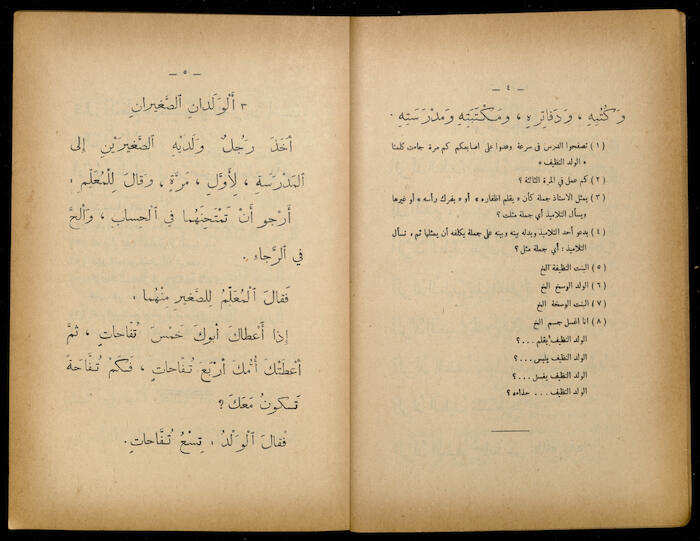 — ٤ —
وَكُتُبِهِ ، وَدَفَاتِرِهِ ، وَمَكْتَبَتِهِ وَمَدْرَسَتِهِ .
(١) تصفحوا الدرس في سرعة وعدوا على اصابعكم كم مرة جاءت كلمتا
« الولد النظيف »
(٢) كم عمل في المرة الثالثة ؟
(٣) يمثل الاستاذ جملة كأن « يقلم اظفاره » أو « يفرك رأسه » أو غيرها
ويسأل التلاميذ أي جملة مثلت ؟
(٤) يدعو أحد التلاميذ ويدله بينه وبينه على جملة يكلفه أن يمثلها ثم يسأل
التلاميذ : أي جملة مثل ؟
(٥) البنت النظيفة الخ
(٦) الولد الوسخ الخ
(٧) البنت الوسخة الخ
(٨) انا اغسل جسم الخ
الولد النظيف يقلم . . . ؟
الولد النظيف يلبس . . . ؟
الولد النظيف يغسل . . . ؟
الولد النظيف . . . حذاءه ؟
— ٥ —
٣ أَلْوَلَدَانِ الصَّغِيرانِ
أَخَذَ رَجُلٌ وَلَدَيْهِ الصَّغِيرَيْنِ إِلى
الْمَدْرَسَةِ ، لِأَوَّلِ ، مَرَّةٍ ، وَقَالَ لِلْمُعَلِّمِ .
أَرْجُو أَنْ تَمْتَحِنَهُما فِي الْحِسابِ ، وَأَلَحَّ
في الرَّجاءِ .
فَقالَ الْمُعَلِّمُ لِلصَّغيرِ مِنْهُما .
إذا أَعْطاكَ أَبوكَ خَمْسَ تُفّاحاتٍ ، ثُمَّ
أَعْطَتْكَ أُمُّكَ أَرْبَعَ تُفّاحاتٍ ، فَكَمْ تُفّاحَةً
تَكونُ مَعَكَ ؟
فَقالَ الْوَلَدُ . تِسْعُ تُفَّاحاتٍ .